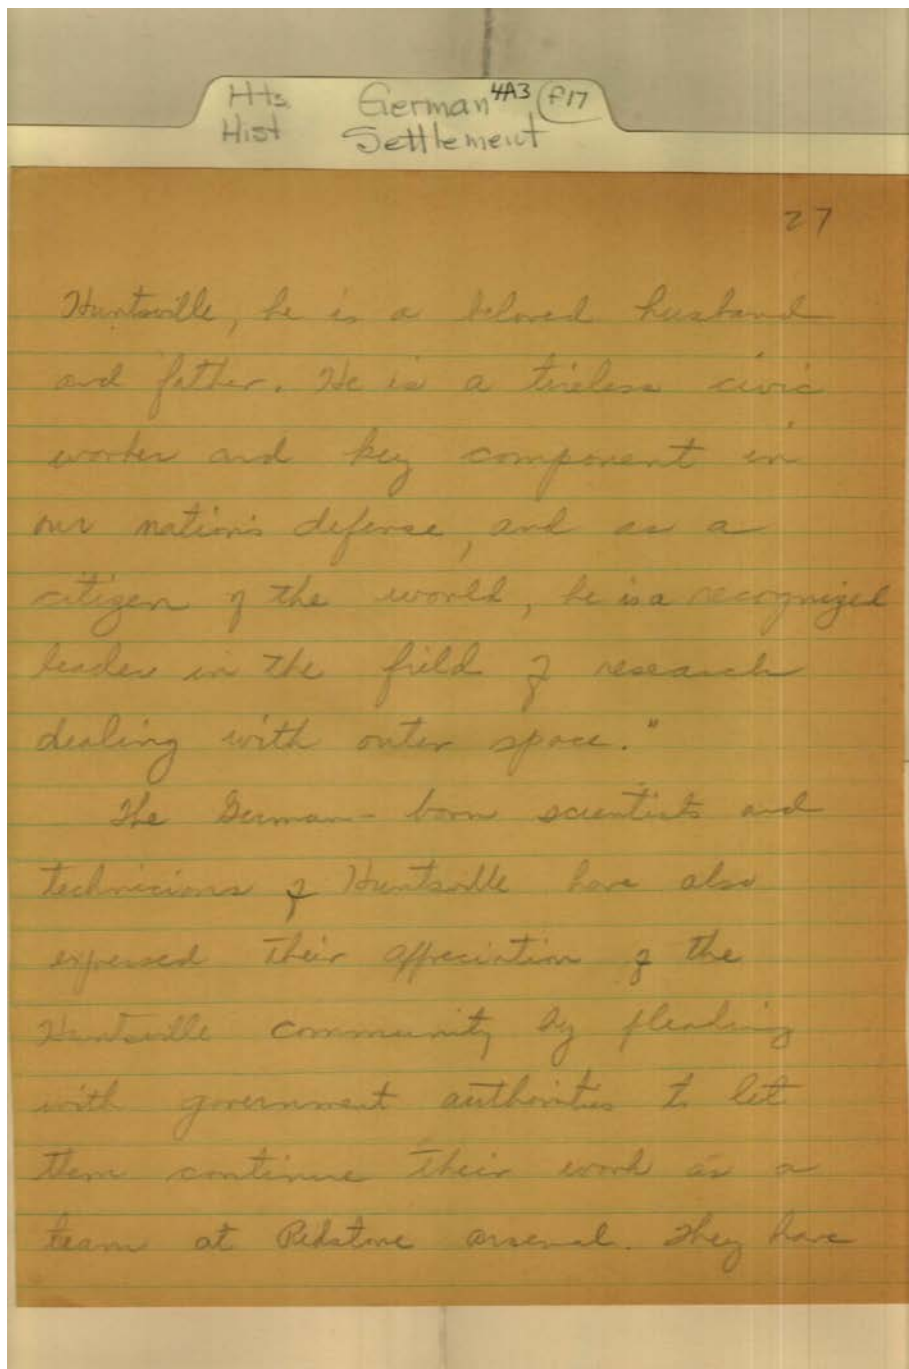 Hts. German 4A3 f17
Hist Settlement
27
Huntsville, he is a beloved husband
and father. He is a tireless civic
worker and key component in
our nation's defense, and as a
citizen of the world, he is a recognized
leader in the field of research
dealing with outer space."
The German-born scientists and
technicians of Huntsville have also
expressed their appreciation of the
Huntsville community by pleading
with government authorities to let
them continue their work as a
team at Redstone arsenal. They have